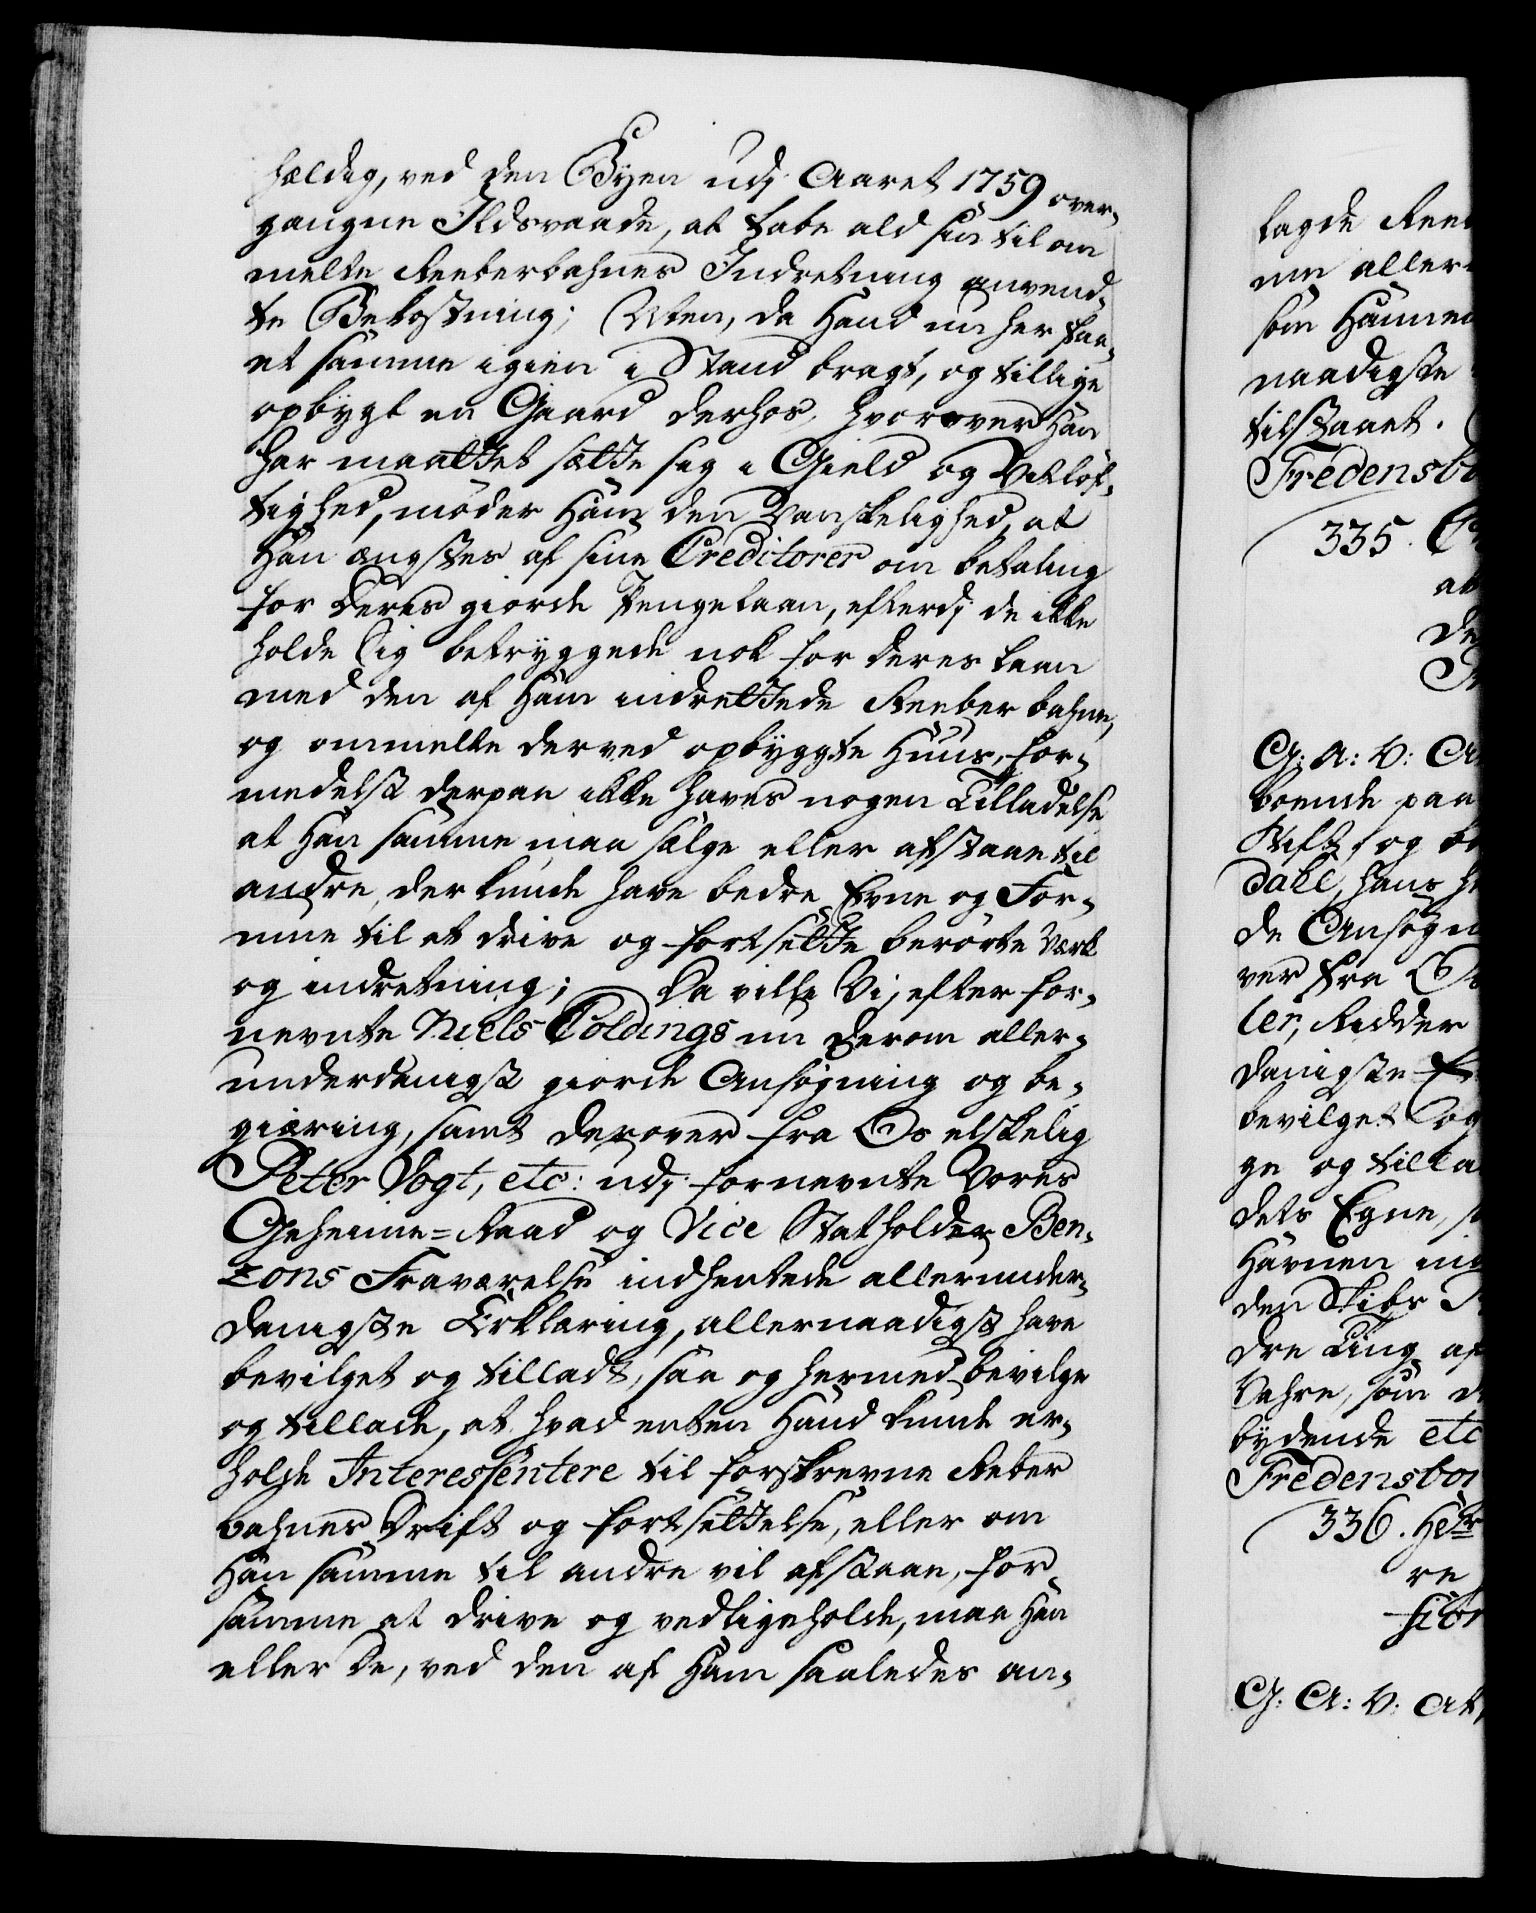 hældig, ved den Byen udj Aaret 1759 over-
gangne Ildsvaade, at tabe ald sin til om
melte Reeberbahnes Indretning anvend-
te Bekostning; Men, da Hand nu har faa-
et samme igien i Stand bragt, og tillige
opbygt en Gaard derhos, hvorover Han
har maattet sætte sig i Gield og Vitløf-
tighed, møder Ham den Vanskelighed, at
Han ængstes af sine Creditorer om betaling
for deres giorde Pengelaan, efterdj de ikke
holde Sig betryggede nok for deres laan
med den af Ham indrettede Reeberbahne,
og ommelte derved opbyggte Huus, for-
medelst derpaa ikke haves nogen Tilladelse
at Han samme maa sælge eller afstaae til
andre, der kunde have bedre Evne og For-
mue til at drive og fortsætte berørte Værk
og indretning; Da ville Vi, efter for-
nevnte Niels Coldings nu derom aller-
underdanigst giorde Ansøgning og be-
giæring, samt derover fra Os elskelig
Peter Vogt, etc: udj fornevnte Vores
Geheime=Raad og Vice Statholder Ben-
zons Fraværelse indhentede allerunder-
danigste Erklæring, allernaadigst have
bevilget og tilladt, saa og hermed bevilge
og tillade, at hvad enten Hand kunde er-
holde Interessentere til forskrevne Reeber
bahnes Drift og fortsættelse, eller om
Han samme til andre vil afstaae, for
samme at drive og vedligeholde, maa Han
eller De, ved den af Ham saaledes an-
lagde Reeb
nu aller
som Hannem
naadigste
tilstaaet.
Fredensbo
335.
at
De
G: A: V: A
boende paa
Stift, og be
dall, hans h
de Ansøgn
ver fra Os
ler, Ridder
danigste E
bevilget og
ge og tilla
dets Egne, s
Havnen ing
den Skibs
dre Ting af
Vahre, som d
bydende etc
Fredensbor
336. Her
re
G: A: V: At